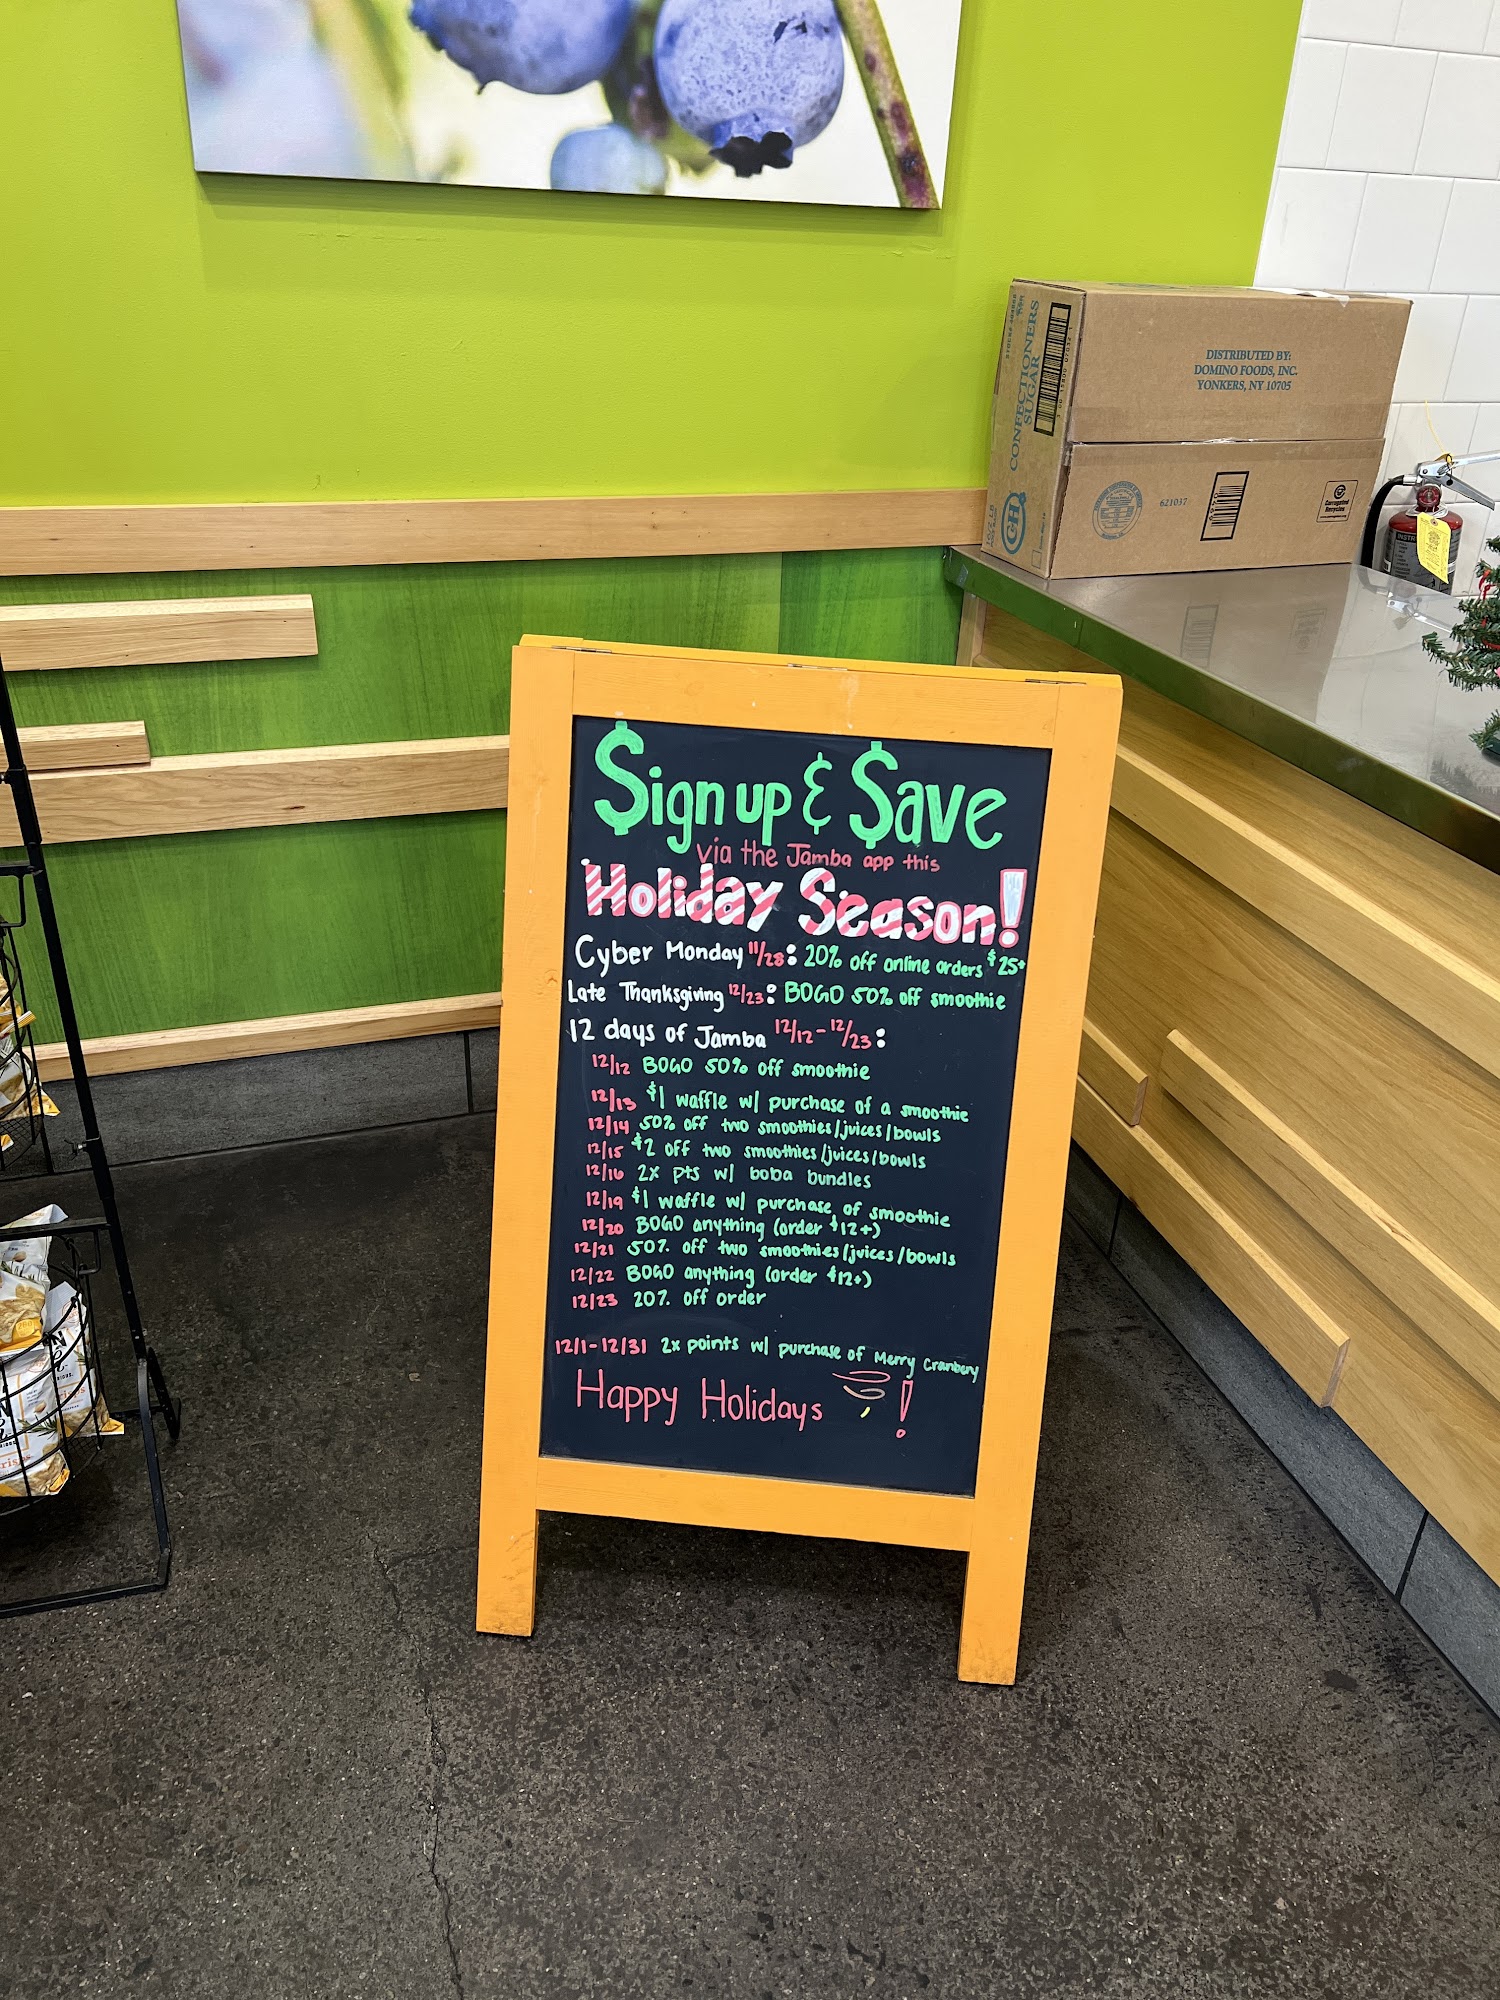 $ign up & $ave
via the Jamba app this
Holiday Season!
Cyber Monday 11/28: 20% off online orders $25+
Late Thanksgiving 12/23: BOGO 50% off smoothie
12 days of Jamba 12/12-12/23:
12/12 BOGO 50% off smoothie
12/13 $1 waffle w/ purchase of a smoothie
12/14 50% off two smoothies/juices/bowls
12/15 $2 off two smoothies/juices/bowls
12/16 2x pts w/ boba bundles
12/19 $1 waffle w/ purchase of smoothie
12/20 BOGO anything (order $12+)
12/21 50% off two smoothies/juices/bowls
12/22 BOGO anything (order $12+)
12/23 20% off order
12/1-12/31 2x points w/ purchase of Merry Cranberry
Happy Holidays !
CONFECTIONERS
SUGAR
C&H
DISTRIBUTED BY:
DOMINO FOODS, INC.
YONKERS, NY 10705
621037
Corrugated
Recycles